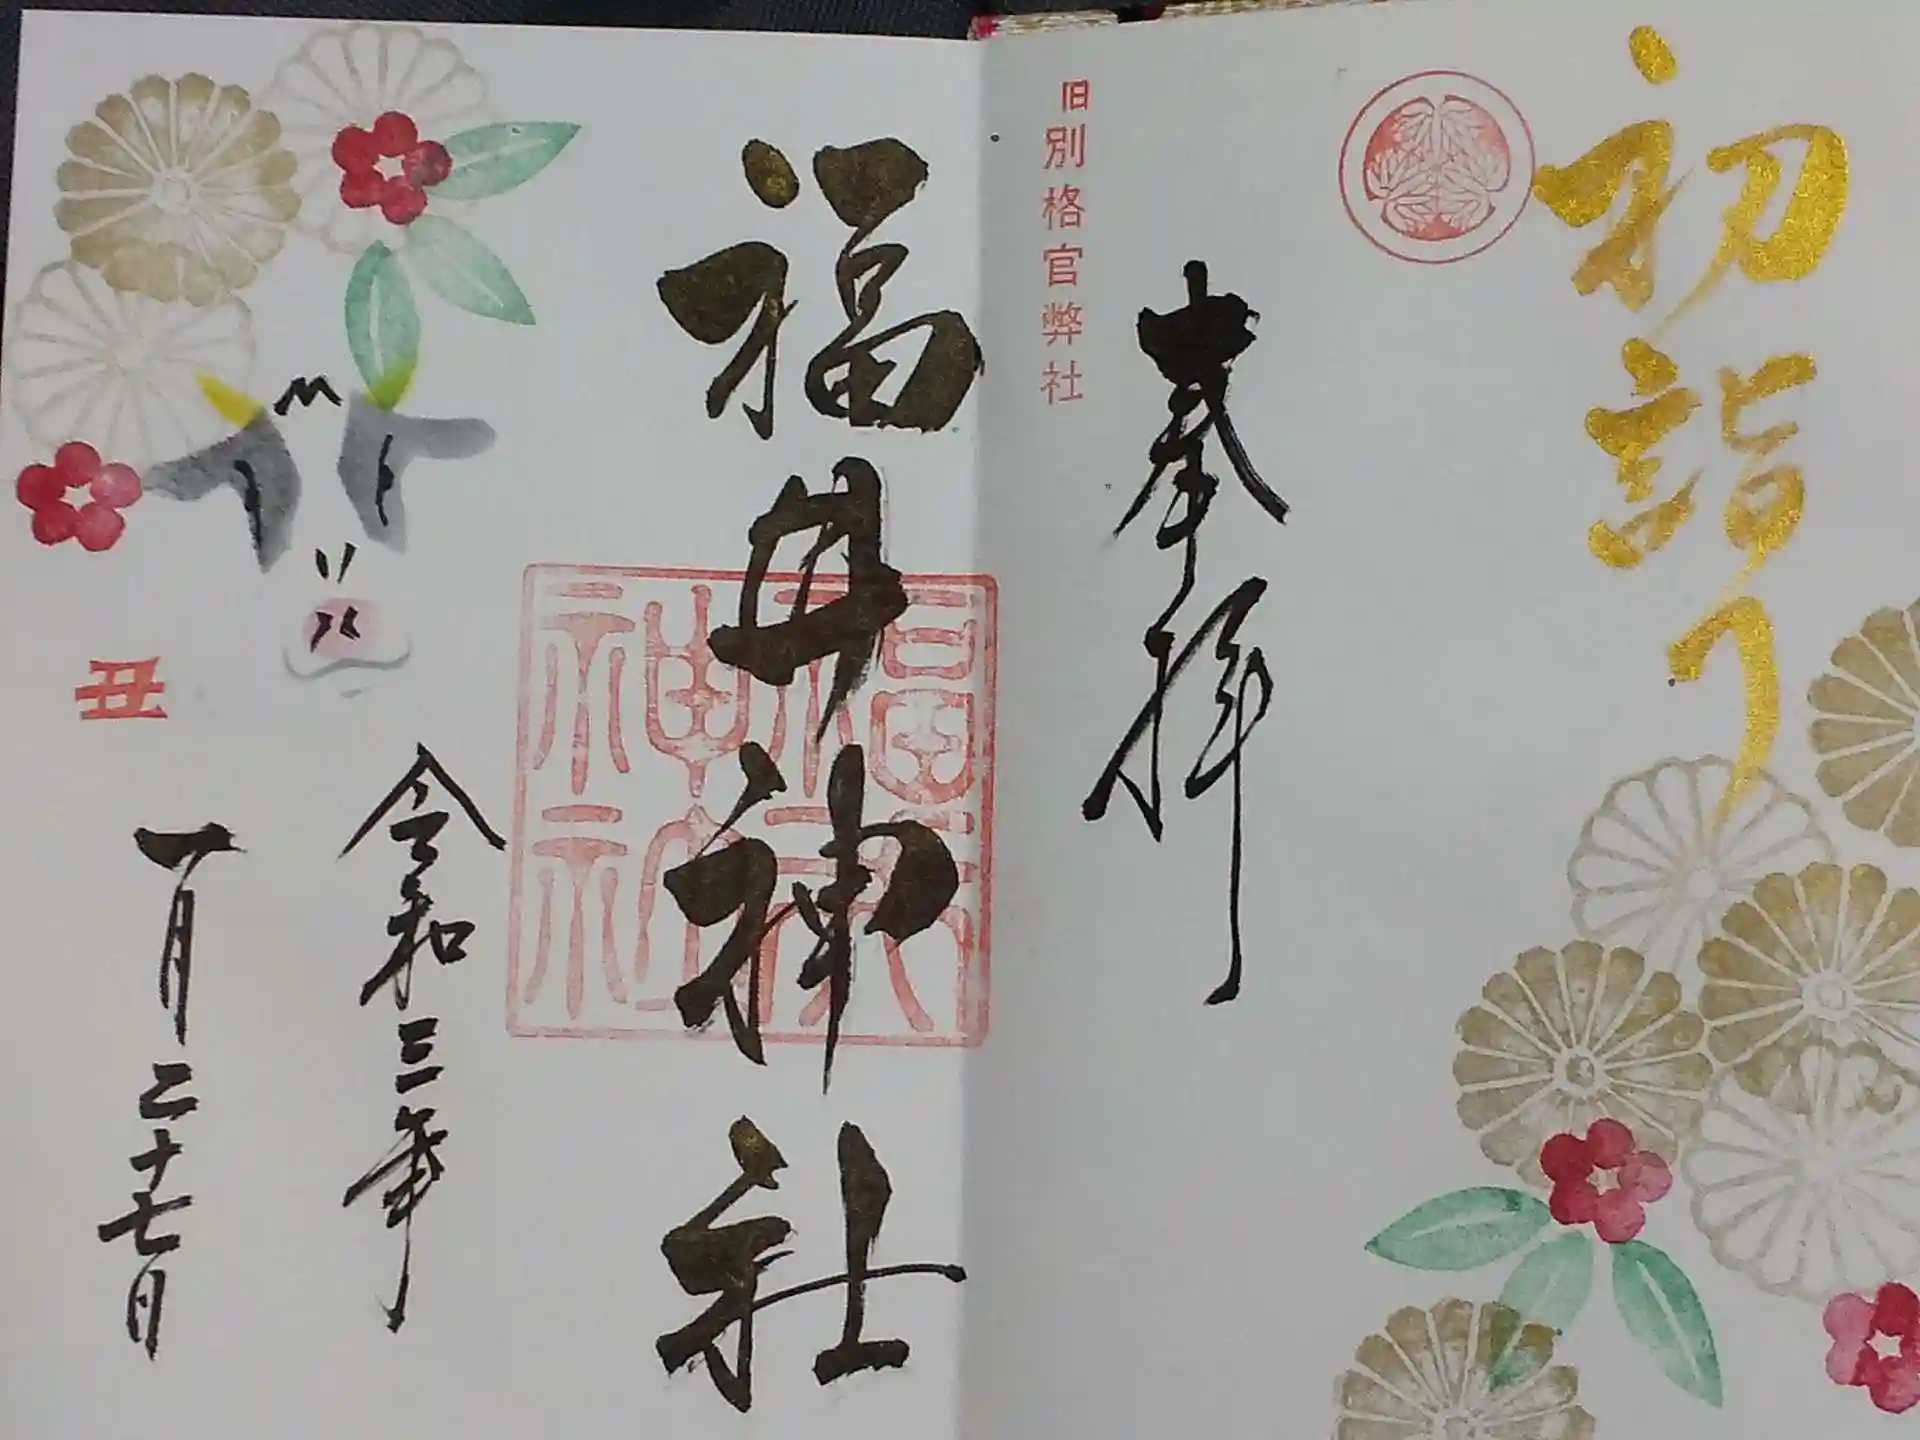 初詣り
奉拝
旧別格官幣社
福井神社
福井神社
令和三年
一月二十七日
丑